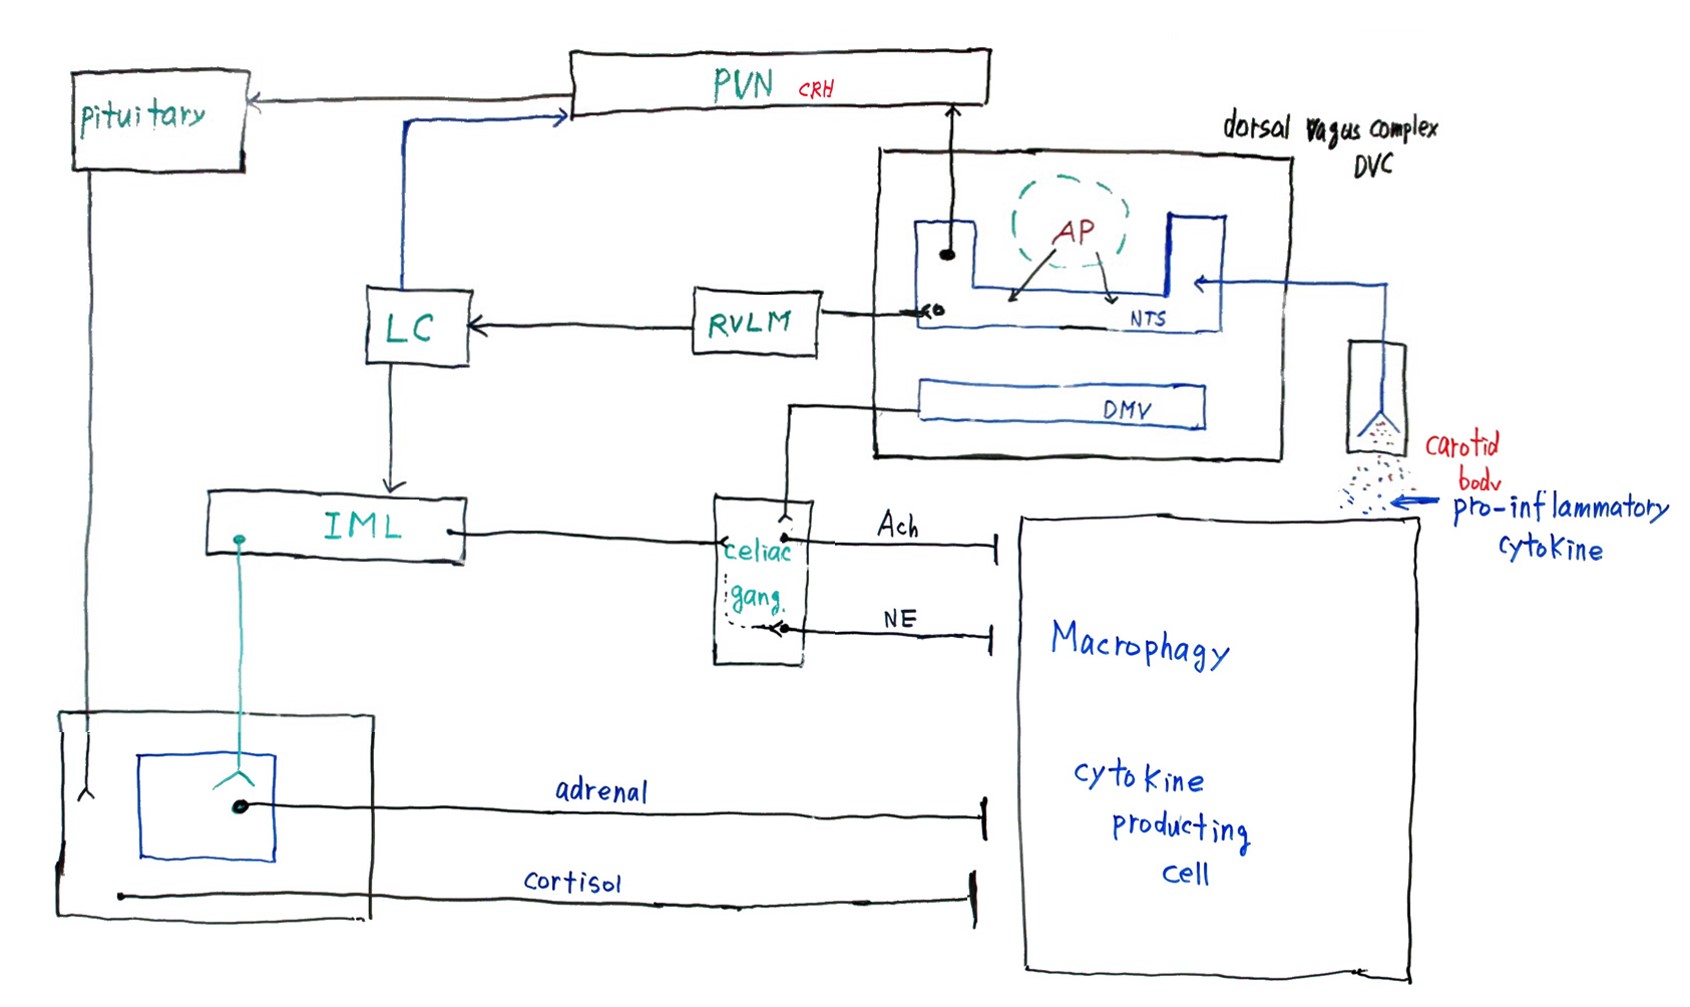 PVN CRH
pituitary
dorsal vagus complex
DVC
AP
LC
RVLM
NTS
DMV
carotid
body
pro-inflammatory
cytokine
IML
celiac
gang.
Ach
NE
Macrophagy
cytokine
producting
cell
adrenal
cortisol